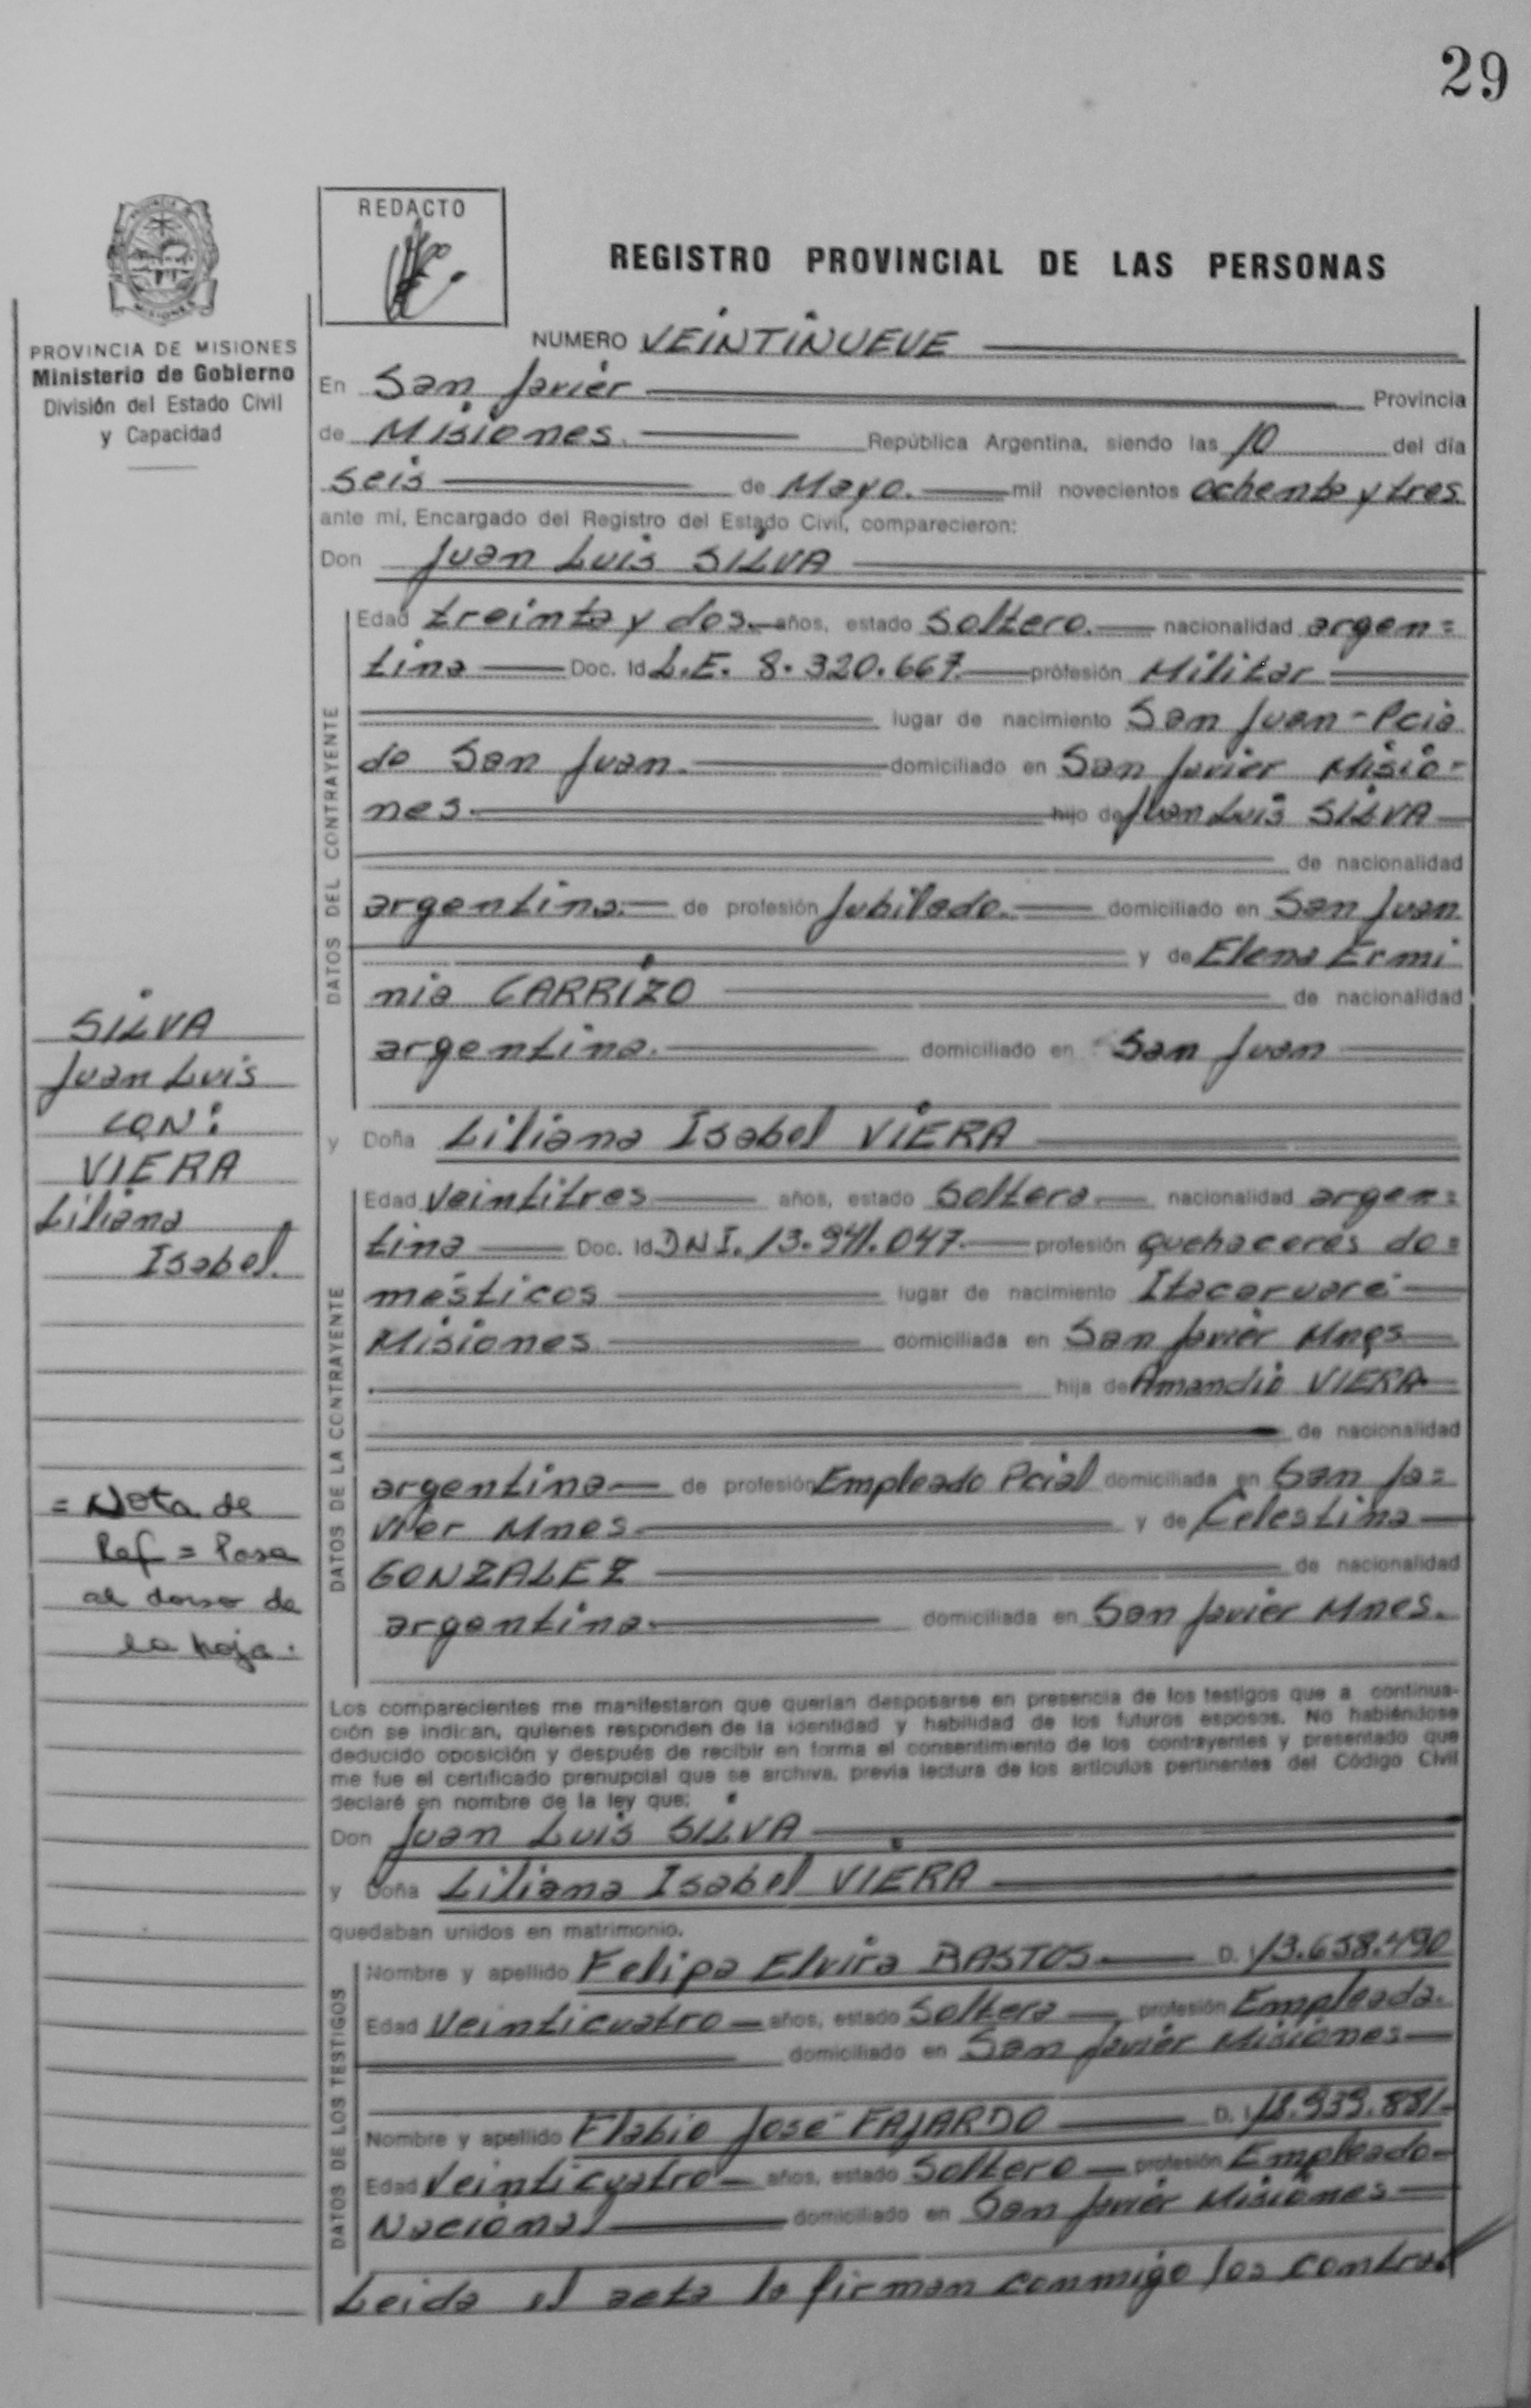 29
REDACTO
REGISTRO PROVINCIAL DE LAS PERSONAS
PROVINCIA DE MISIONES
Ministerio de Gobierno
División del Estado Civil
y Capacidad
NUMERO VEINTINUEVE
En San Javier Provincia
de Misiones. República Argentina, siendo las 10 del día
seis de Mayo. mil novecientos ochenta y tres
ante mí, Encargado del Registro del Estado Civil, comparecieron:
Don Juan Luis SILVA
DATOS DEL CONTRAYENTE
Edad treinta y dos. años, estado Soltero. nacionalidad argen=
tina Doc. Id L.E. 8.320.667. profesión Militar
lugar de nacimiento San Juan - Pcia
de San Juan. domiciliado en San Javier Misio-
nes. hijo de Juan Luis SILVA
de nacionalidad
argentina. de profesión Jubilado. domiciliado en San Juan
y de Elena Ermi
nia CARRIZO de nacionalidad
argentina. domiciliado en San Juan
SILVA
Juan Luis
CON:
VIERA
Liliana
Isabel.
y Doña Liliana Isabel VIERA
DATOS DE LA CONTRAYENTE
Edad veintitres años, estado Soltera nacionalidad argen=
tina Doc. Id DNI. 13.941.047. profesión quehaceres do=
mésticos lugar de nacimiento Itacaruaré
Misiones domiciliada en San Javier Mnes
hija de Amandio VIERA
de nacionalidad
argentina de profesión Empleado Pcial domiciliada en San Ja=
vier Mnes y de Celestina
GONZALEZ de nacionalidad
argentina. domiciliada en San Javier Mnes.
= Nota de
Ref = Pasa
al dorso de
la hoja.
Los comparecientes me manifestaron que querían desposarse en presencia de los testigos que a continua-
ción se indican, quienes responden de la identidad y habilidad de los futuros esposos. No habiéndose
deducido oposición y después de recibir en forma el consentimiento de los contrayentes y presentado que
me fue el certificado prenupcial que se archiva, previa lectura de los artículos pertinentes del Código Civil
declaré en nombre de la ley que:
Don Juan Luis SILVA
y Doña Liliana Isabel VIERA
quedaban unidos en matrimonio.
DATOS DE LOS TESTIGOS
Nombre y apellido Felipa Elvira BASTOS D. I 13.658.490
Edad Veinticuatro años, estado Soltera profesión Empleada.
domiciliado en San Javier Misiones
Nombre y apellido Flabio José FAJARDO D. I
Edad Veinticuatro años, estado Soltero profesión Empleado
Nacional domiciliado en San Javier Misiones
Leida el acta la firman conmigo los contra